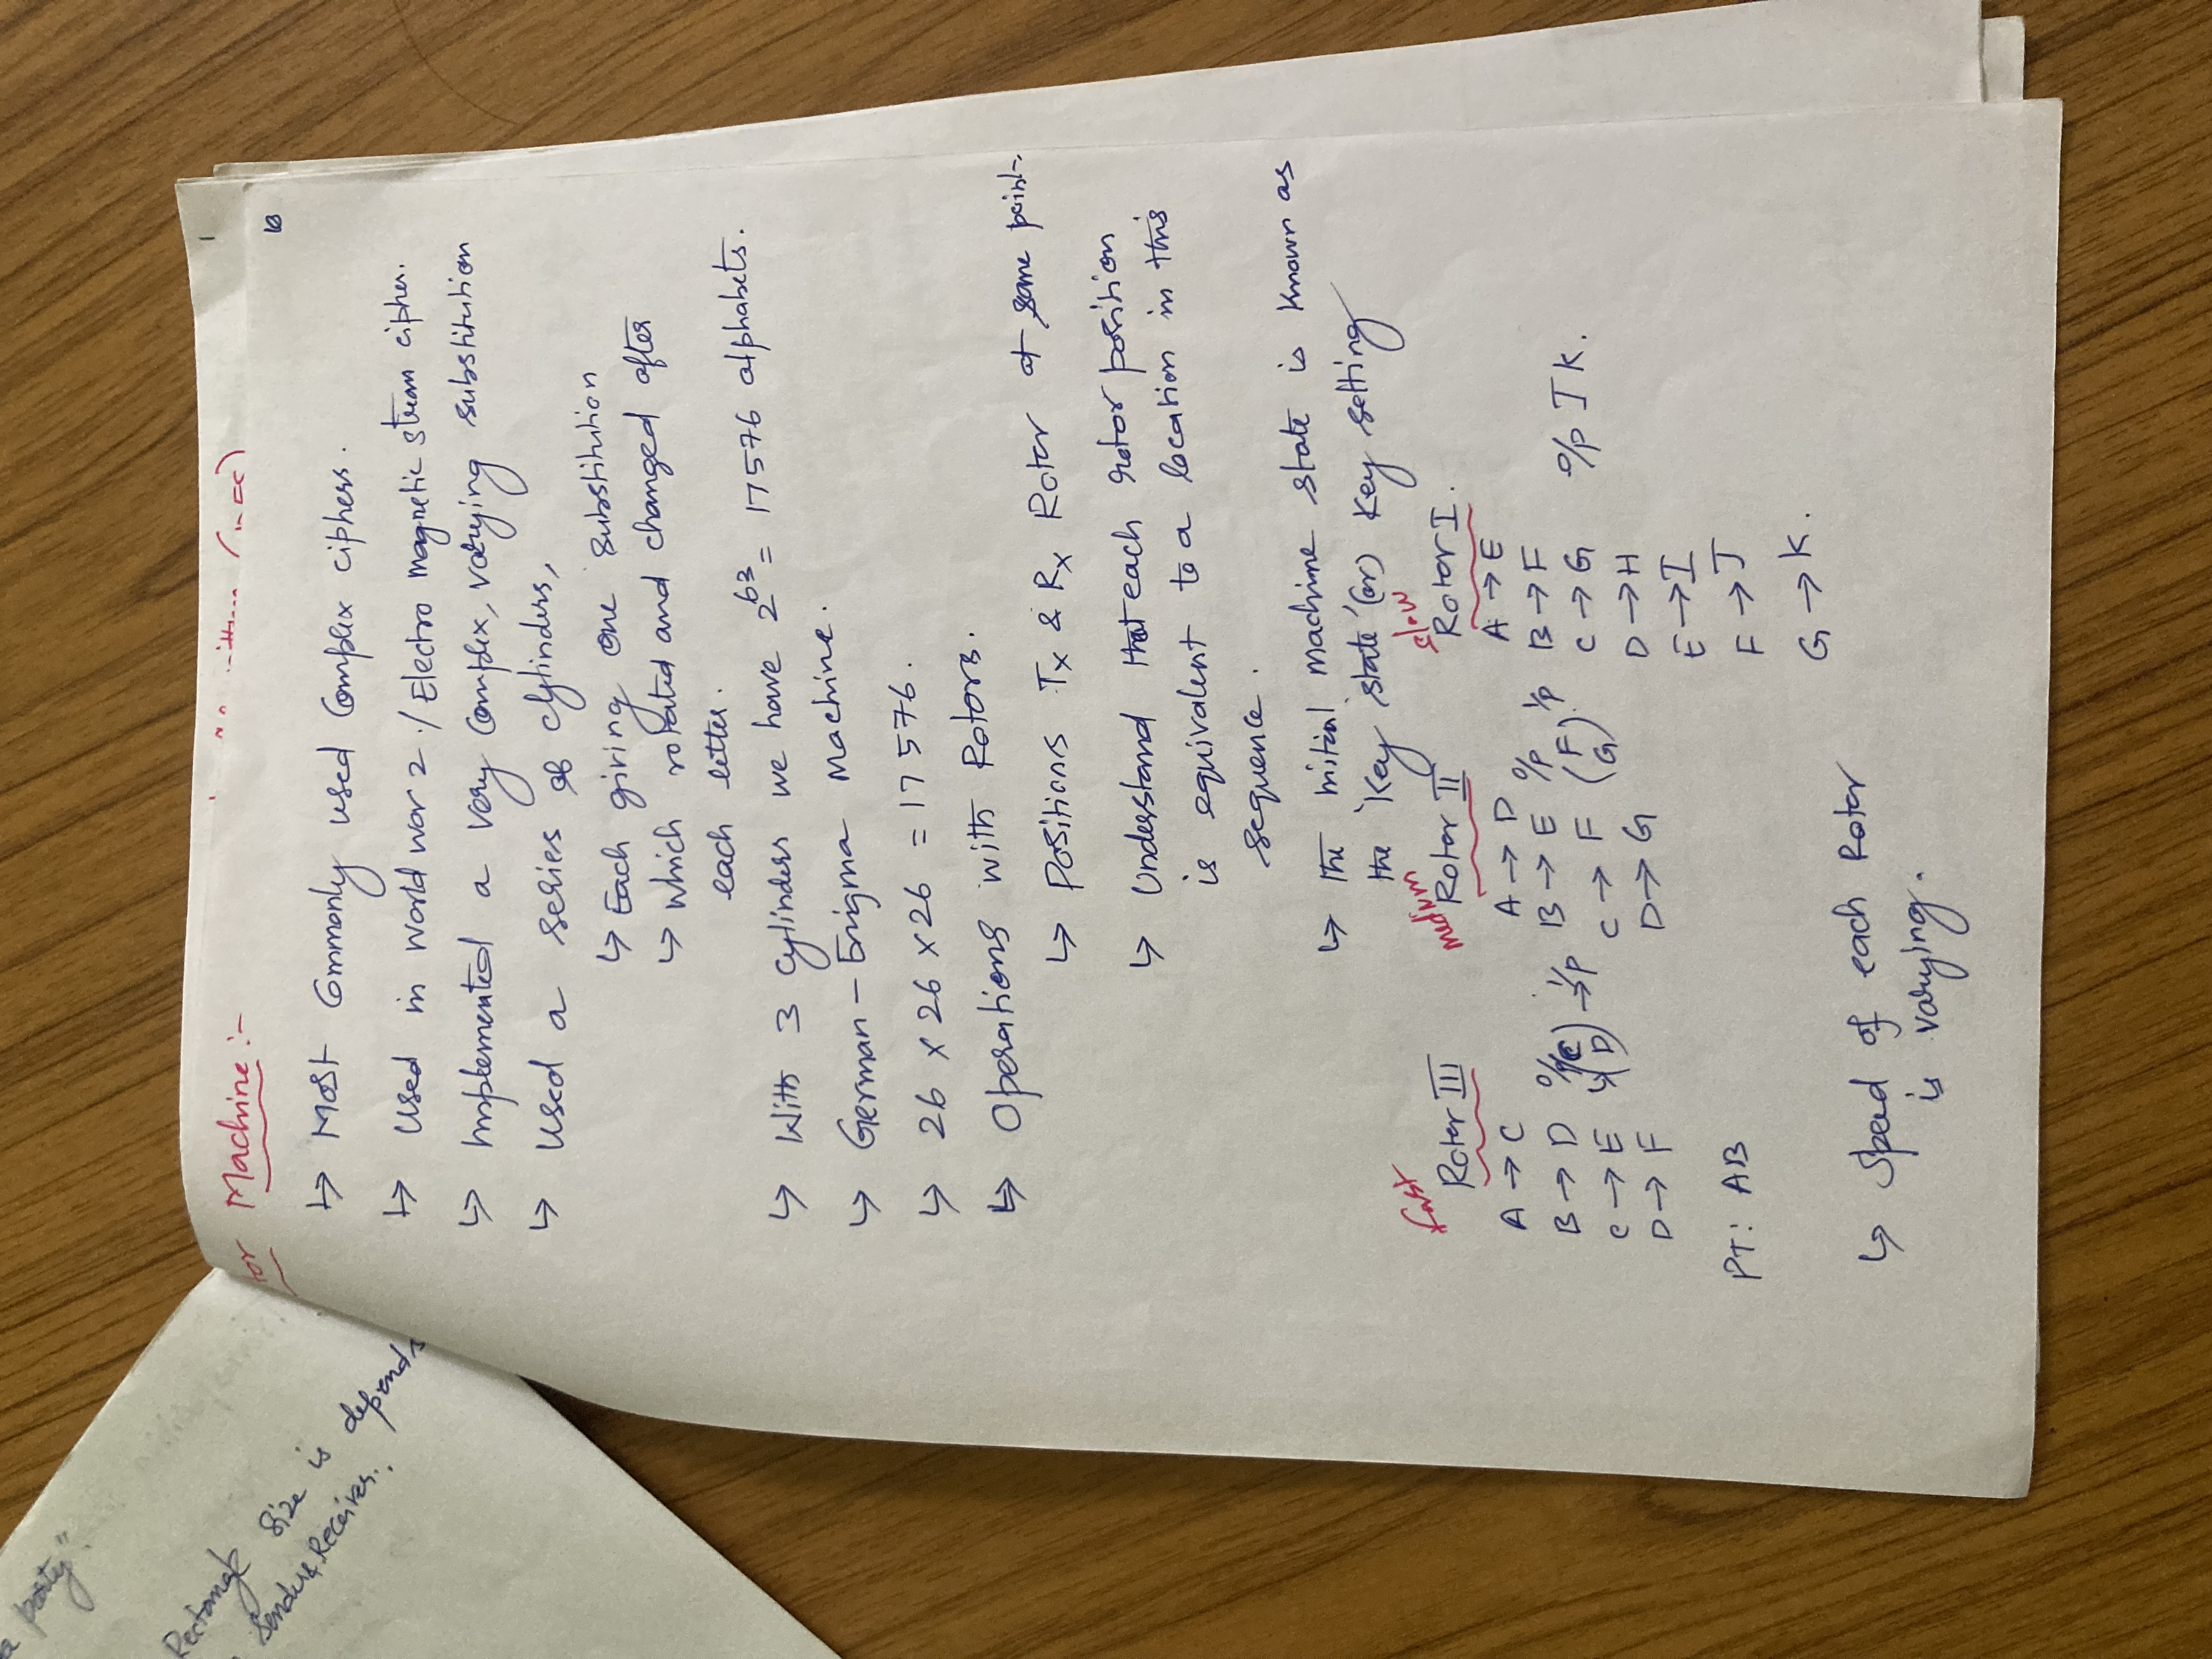 a party".
Rectangle size is depends
Sender & Receiver.
tor Machine :-
10
↳ Most Commonly used Complex ciphers.
↳ Used in world war 2 ./ Electro magnetic stream cipher.
↳ Implemented a very complex, varying substitution
↳ Used a series of cylinders,
↳ Each giving one substitution
↳ which rotated and changed after
each letter.
↳ With 3 cylinders we have 2^63 = 17576 alphabets.
↳ German - Enigma Machine.
↳ 26 x 26 x 26 = 17576.
↳ Operations with Rotors.
↳ Positions Tx & Rx Rotor at same point.
↳ Understand that each rotor position
is equivalent to a location in this
sequence.
↳ The initial machine state is known as
the 'Key state' (or) Key setting
fast medium slow
Rotor III Rotor II Rotor I.
A → C A → D A → E
B → D o/p (C → i/p B → E o/p i/p B → F
C → E ↳ D) C → F (F G) C → G o/p J K.
D → F D → G D → H
E → I
PT: AB F → J
G → K.
↳ Speed of each Rotor
is varying.